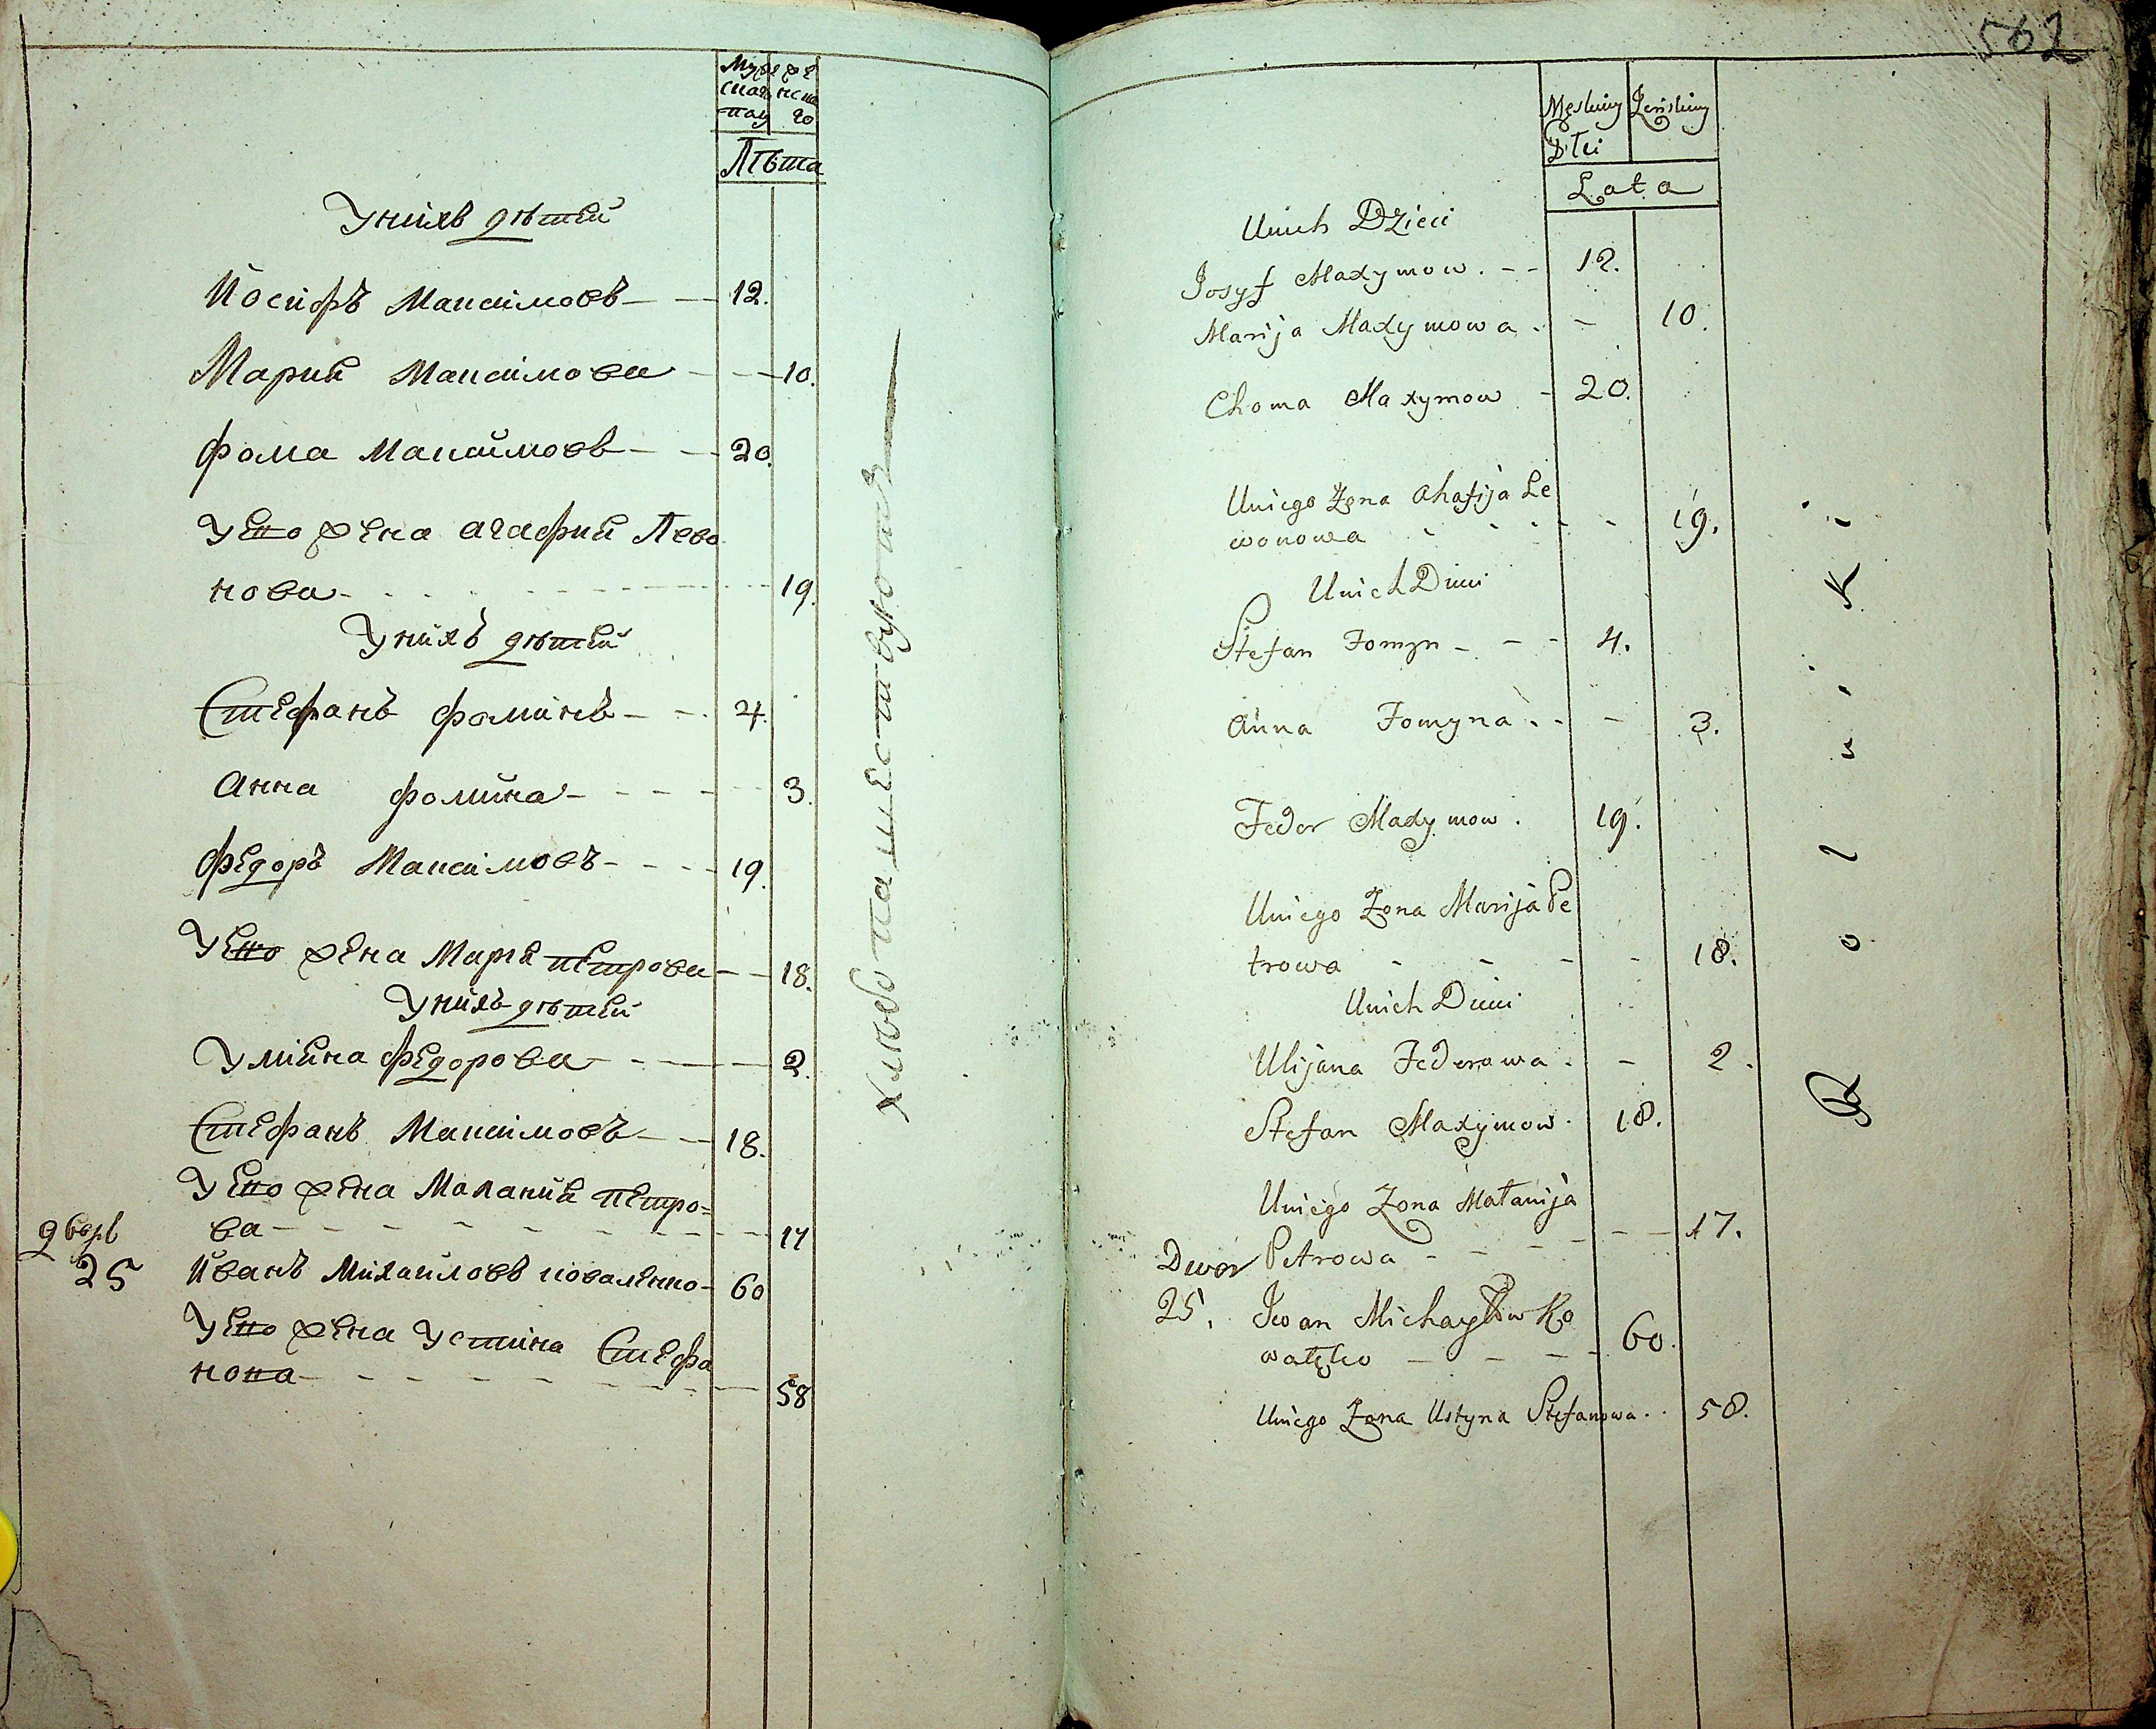 Муже
скаго
полу
же
нска
го
Лѣта
У нихъ дѣтей
Иосифъ Максимовъ — — 12.
Марии Максимова — — 10.
Фома Максимовъ — — 20.
У ево жена Агафии Лево
нова - - - - 19.
У нихъ дѣтей
Стефанъ Фоминъ — - 4.
Анна Фомина - - - - 3.
Федоръ Максимовъ - - - 19.
У ево жена Марія Петрова — — 18.
У нихъ дѣтей
Улияна Федорова - - — — 2.
Стефанъ Максимовъ — — 18.
У ево жена Маланий Петро=
ва — — — — 17
дворъ
25
Иванъ Михайловъ Коваленко - 60
У ево жена Устина Стефа
нова — - - - - 58
хлебопашествуютъ
562
Męskiey Żeńskiey
Płci
Lata
Unich Dzieci
Josyf Maxymow. - - 12.
Marija Maxymowa. - 10.
Choma Maxymow - 20.
Uniego Żona Ahafija Le
wonowa - - - - 19.
Unich Dzieci
Stefan Fomyn - - - 4.
Anna Fomyna . . - 3.
Fedor Maxymow. 19.
Uniego Żona Marija Pe
trowa - - - - 18.
Unich Dzieci
Ulijana Federowa. - 2.
Stefan Maxymow. 18.
Uniego Żona Małanija
Petrowa - - - - 17.
Dwor
25.
Iwan Michayłow Ko
wałęko — - - - 60.
Uniego Żona Ustyna Stefanowa. . 58.
Rolniki